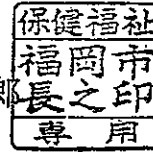 保健福祉
福岡市
郎長之印
専用